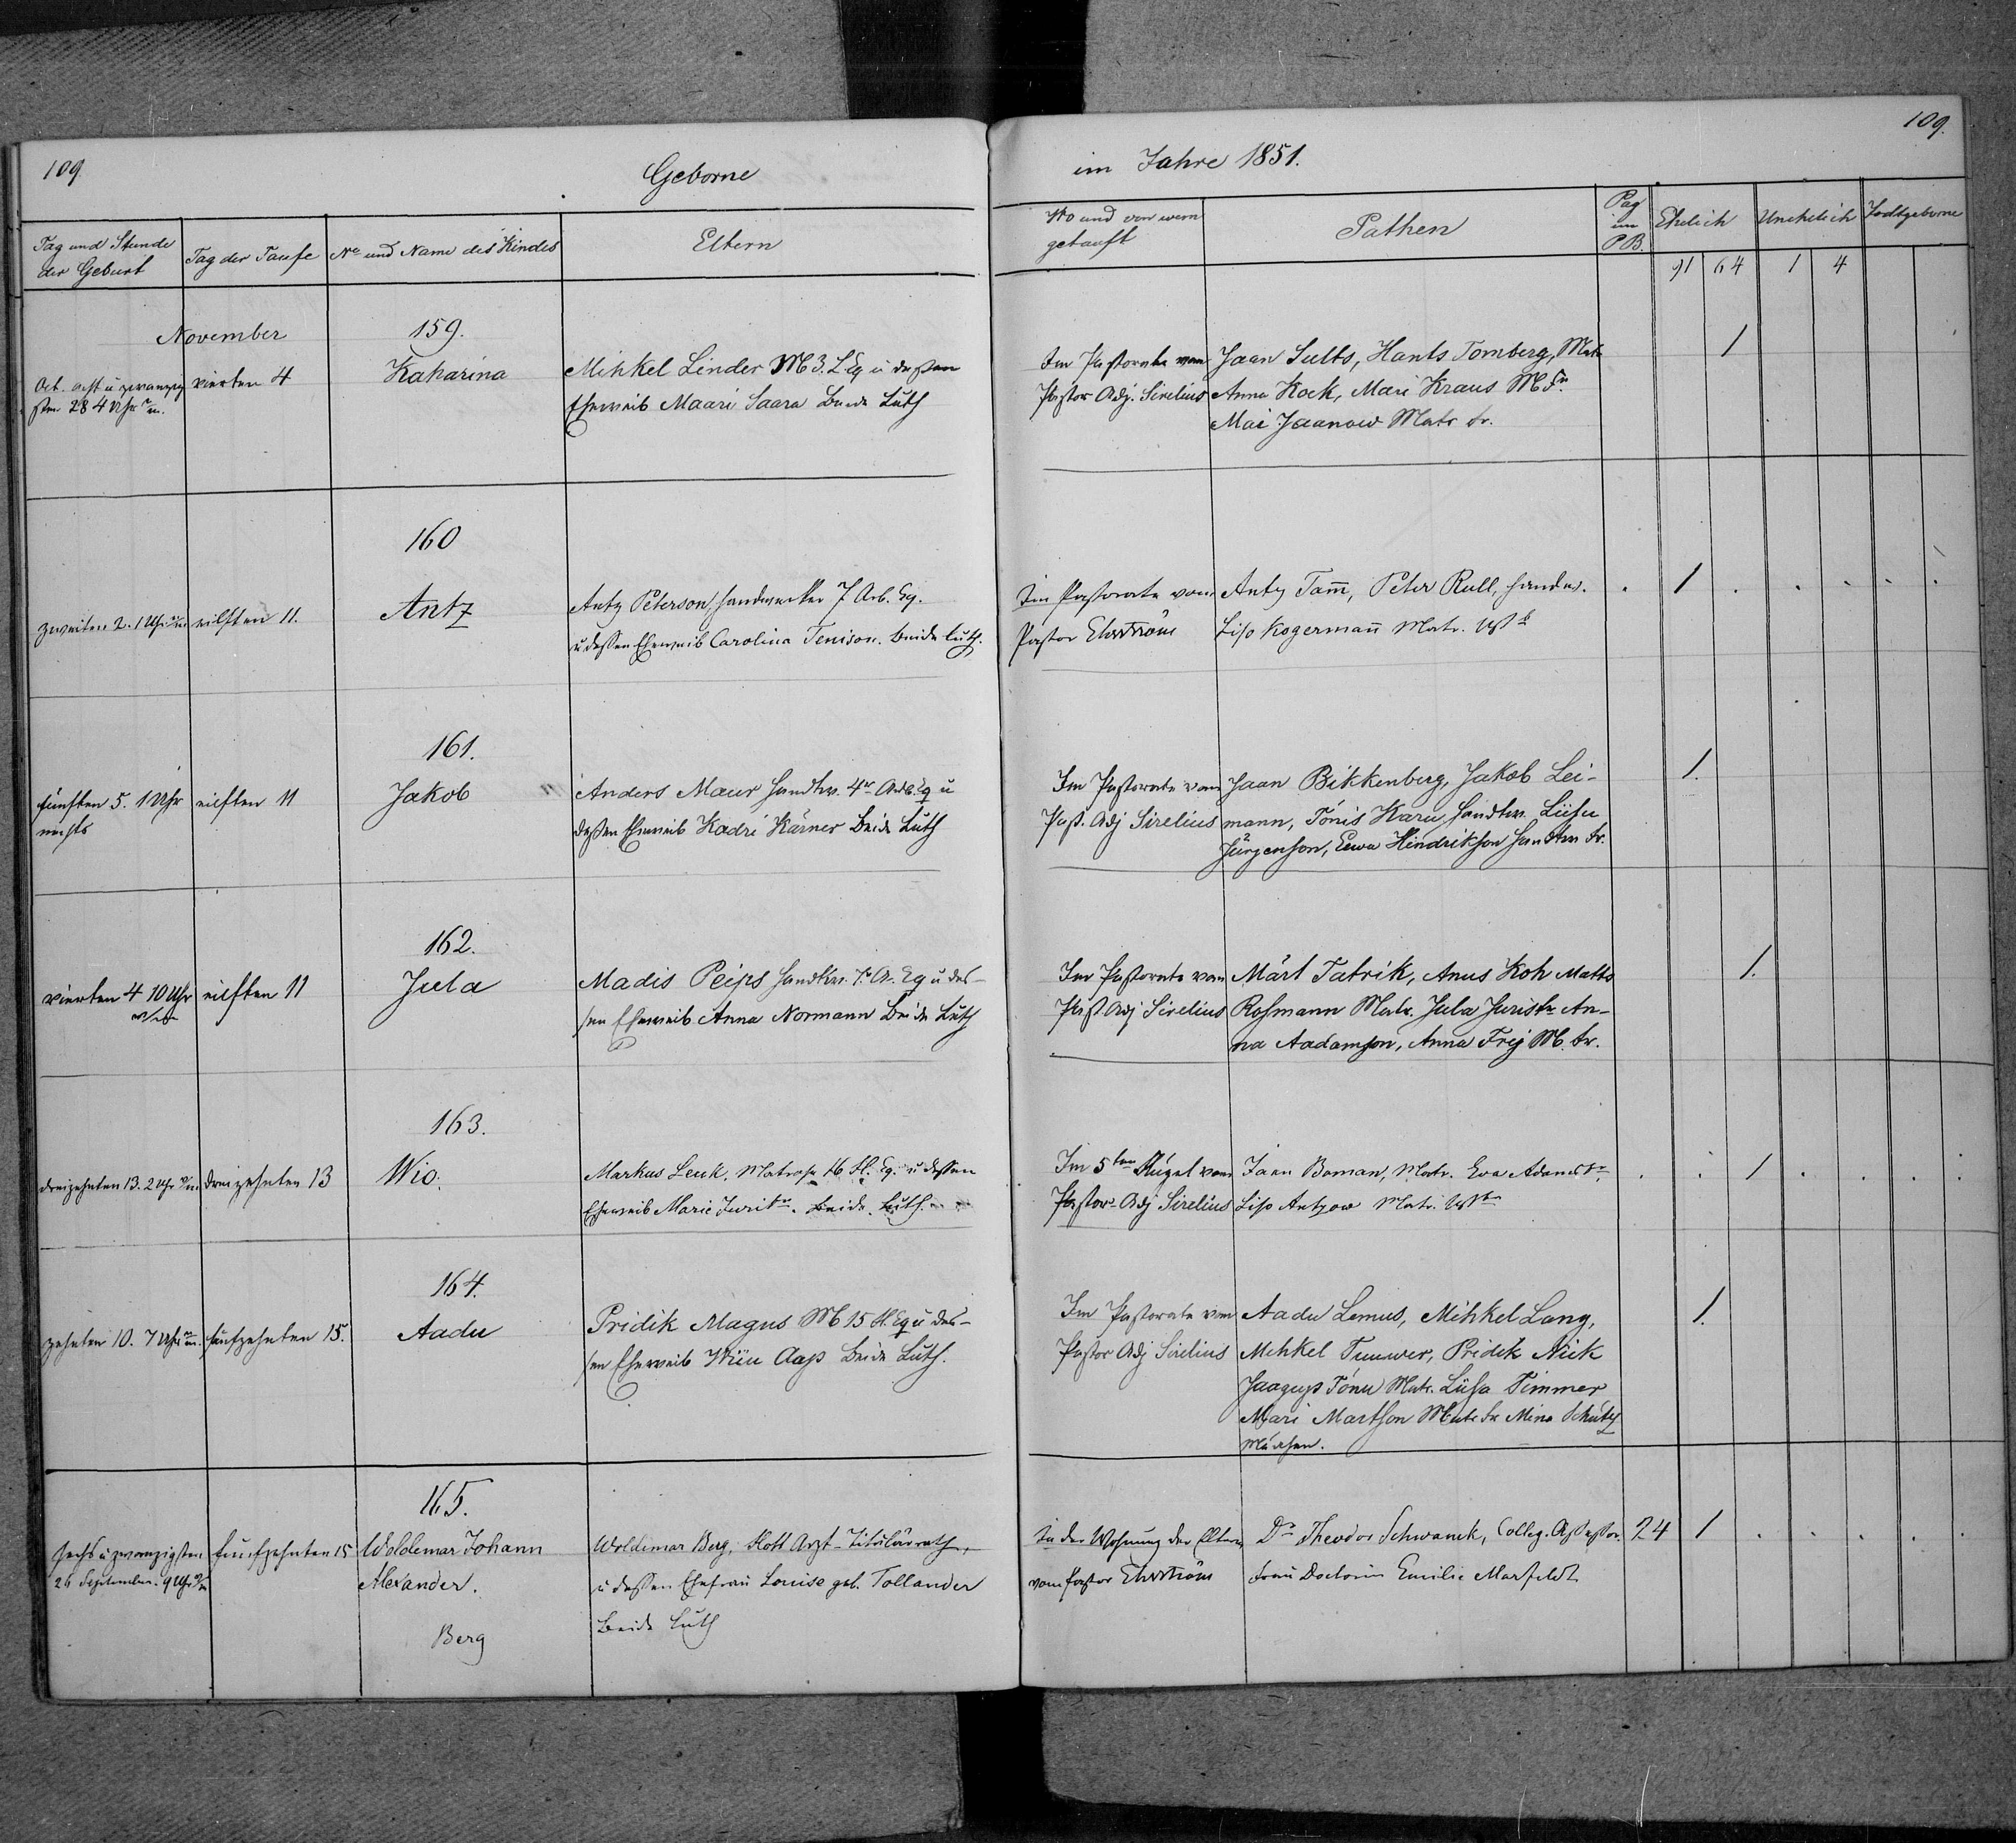 109.
Geborne
im Jahre 1851.
109.
Tag und Stunde der Geburt
Tag der Taufe
No und Name des Kindes
Eltern
Wo und von wem getauft
Pathen
Pag im P.B.
Ehelich
Unehelich
Todtgeborne
91 64 1 4
November
159.
Oct. acht u zwanzig
sten 28 4 Uhr
vierten 4
Kaharina
Mihkel Linder M 3. L Eq u deßen
Eheweib Maari Saara Beide Luth
Im Pastorate vom
Pastor Adj. Sirelius
Jaan Sults, Hants Tomberg, Matr
Anna Kock, Mari Kraus M Fr.
Mai Jaanow Matr tr.
1
160
zweiten 2. 1 Uhr
eilften 11.
Antz
Antz Peterson, Handwerker 7 Arb. Eq.
u deßen Eheweib Carolina Tenison. beide luth.
Im Pastorate vom
Pastor Ehrström
Antz Tam̅, Peter Rull, Handw.
Liso Kogerman̅ Matr.
1
161.
fünften 5. 1 Uhr
nachts
eilften 11
Jakob
Anders Maur Handw. 4r Arb. Eq u
deßen Eheweib Kadri Kärner Beide Luth
Im Pastorate vom
Past. Adj Sirelius
Jaan Bikkenberg, Jakob Lei-
mann, Tönis Karu, Handw. Liisu
Jürgenson, Eewa Hindrikson Handw tr.
1.
162.
vierten 4 10 Uhr
eilften 11
Jula
Madis Peips Handw. 7r A. Eq u des-
sen Eheweib Anna Normann Beide Luth
Im Pastorate vom
Past Adj Sirelius
Märt Tatrik, Anus Koh Matts
Rosmann Matr. Jula Juristr An-
na Aadamson, Anna Frej M. tr.
1.
163.
dreizehnten 13. 2 Uhr
dreizehnten 13
Wio.
Markus Leuk, Matrose 16 Fl. Eq. u deßen
Eheweib Marie Juritr. Beide Luth.
Im 5ten Flügel vom
Pastor Adj Sirelius
Jaan Boman, Matr. Eva Adams tr.
Liso Antzow Matr.
1
164.
zehnten 10. 7 Uhr
fünfzehnten 15.
Aadu
Pridik Magus M 15 Fl. Eq u des-
sen Eheweib Wiiu Aap Beide Luth.
Im Pastorate vom
Pastor Adj Sirelius
Aadu Lemus, Mihkel Lang,
Mihkel Tuuwer, Pridik Nick
Jaagup Tönu Matr. Liisa Timmer
Mari Martson Matr tr Mina Schütz
Mädchen.
1.
165.
sechs u zwanzigsten
26 September. 9 Uhr
fünfzehnten 15
Woldemar Johann
Alexander.
Berg
Woldemar Berg, Flott Arzt-Titulärrath,
u deßen Ehefrau Louise geb. Tollander
Beide Luth
In der Wohnung der Eltern
vom Pastor Ehrström
Dr Theodor Schwanck, Colleg. Assessor.
Frau Doctorin Emilie Marfeldt
24
1